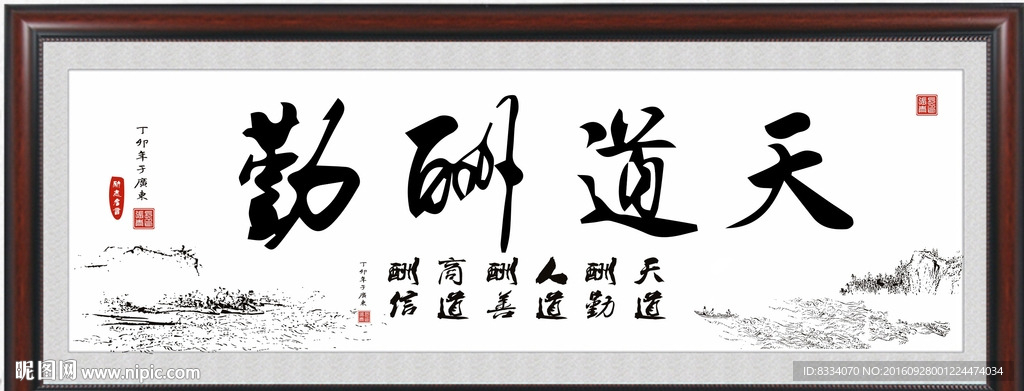 天道酬勤
天道
酬勤
人道
酬善
商道
酬信
丁卯年于廣東
丁卯年于廣東
昵图网 www.nipic.com
ID:8334070 NO:20160928001224474034